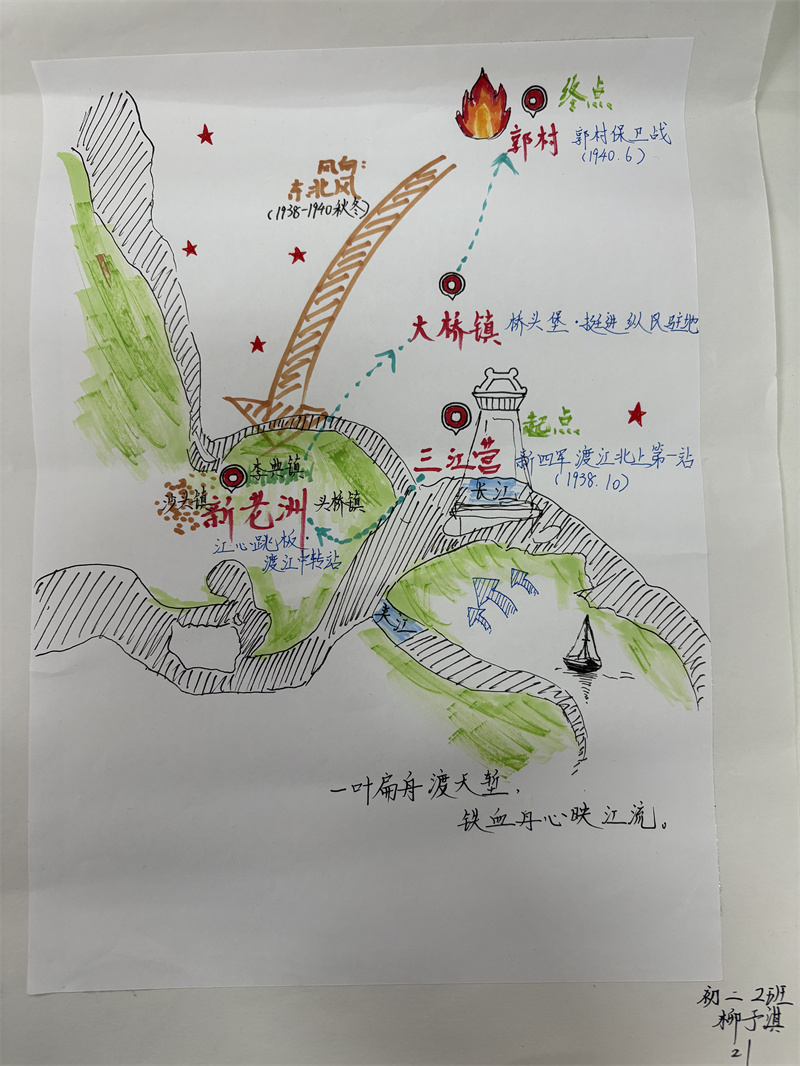 终点
郭村 郭村保卫战
(1940.6)
风向:
东北风
(1938-1940秋冬)
大桥镇 桥头堡·挺进纵队驻地
起点
三江营 新四军渡江北上第一站
(1938.10)
长江
李典镇
沙头镇 新老洲 头桥镇
江心跳板·
渡江中转站
夹江
一叶扁舟渡天堑,
铁血丹心映江流。
初二2班
柳予淇
21